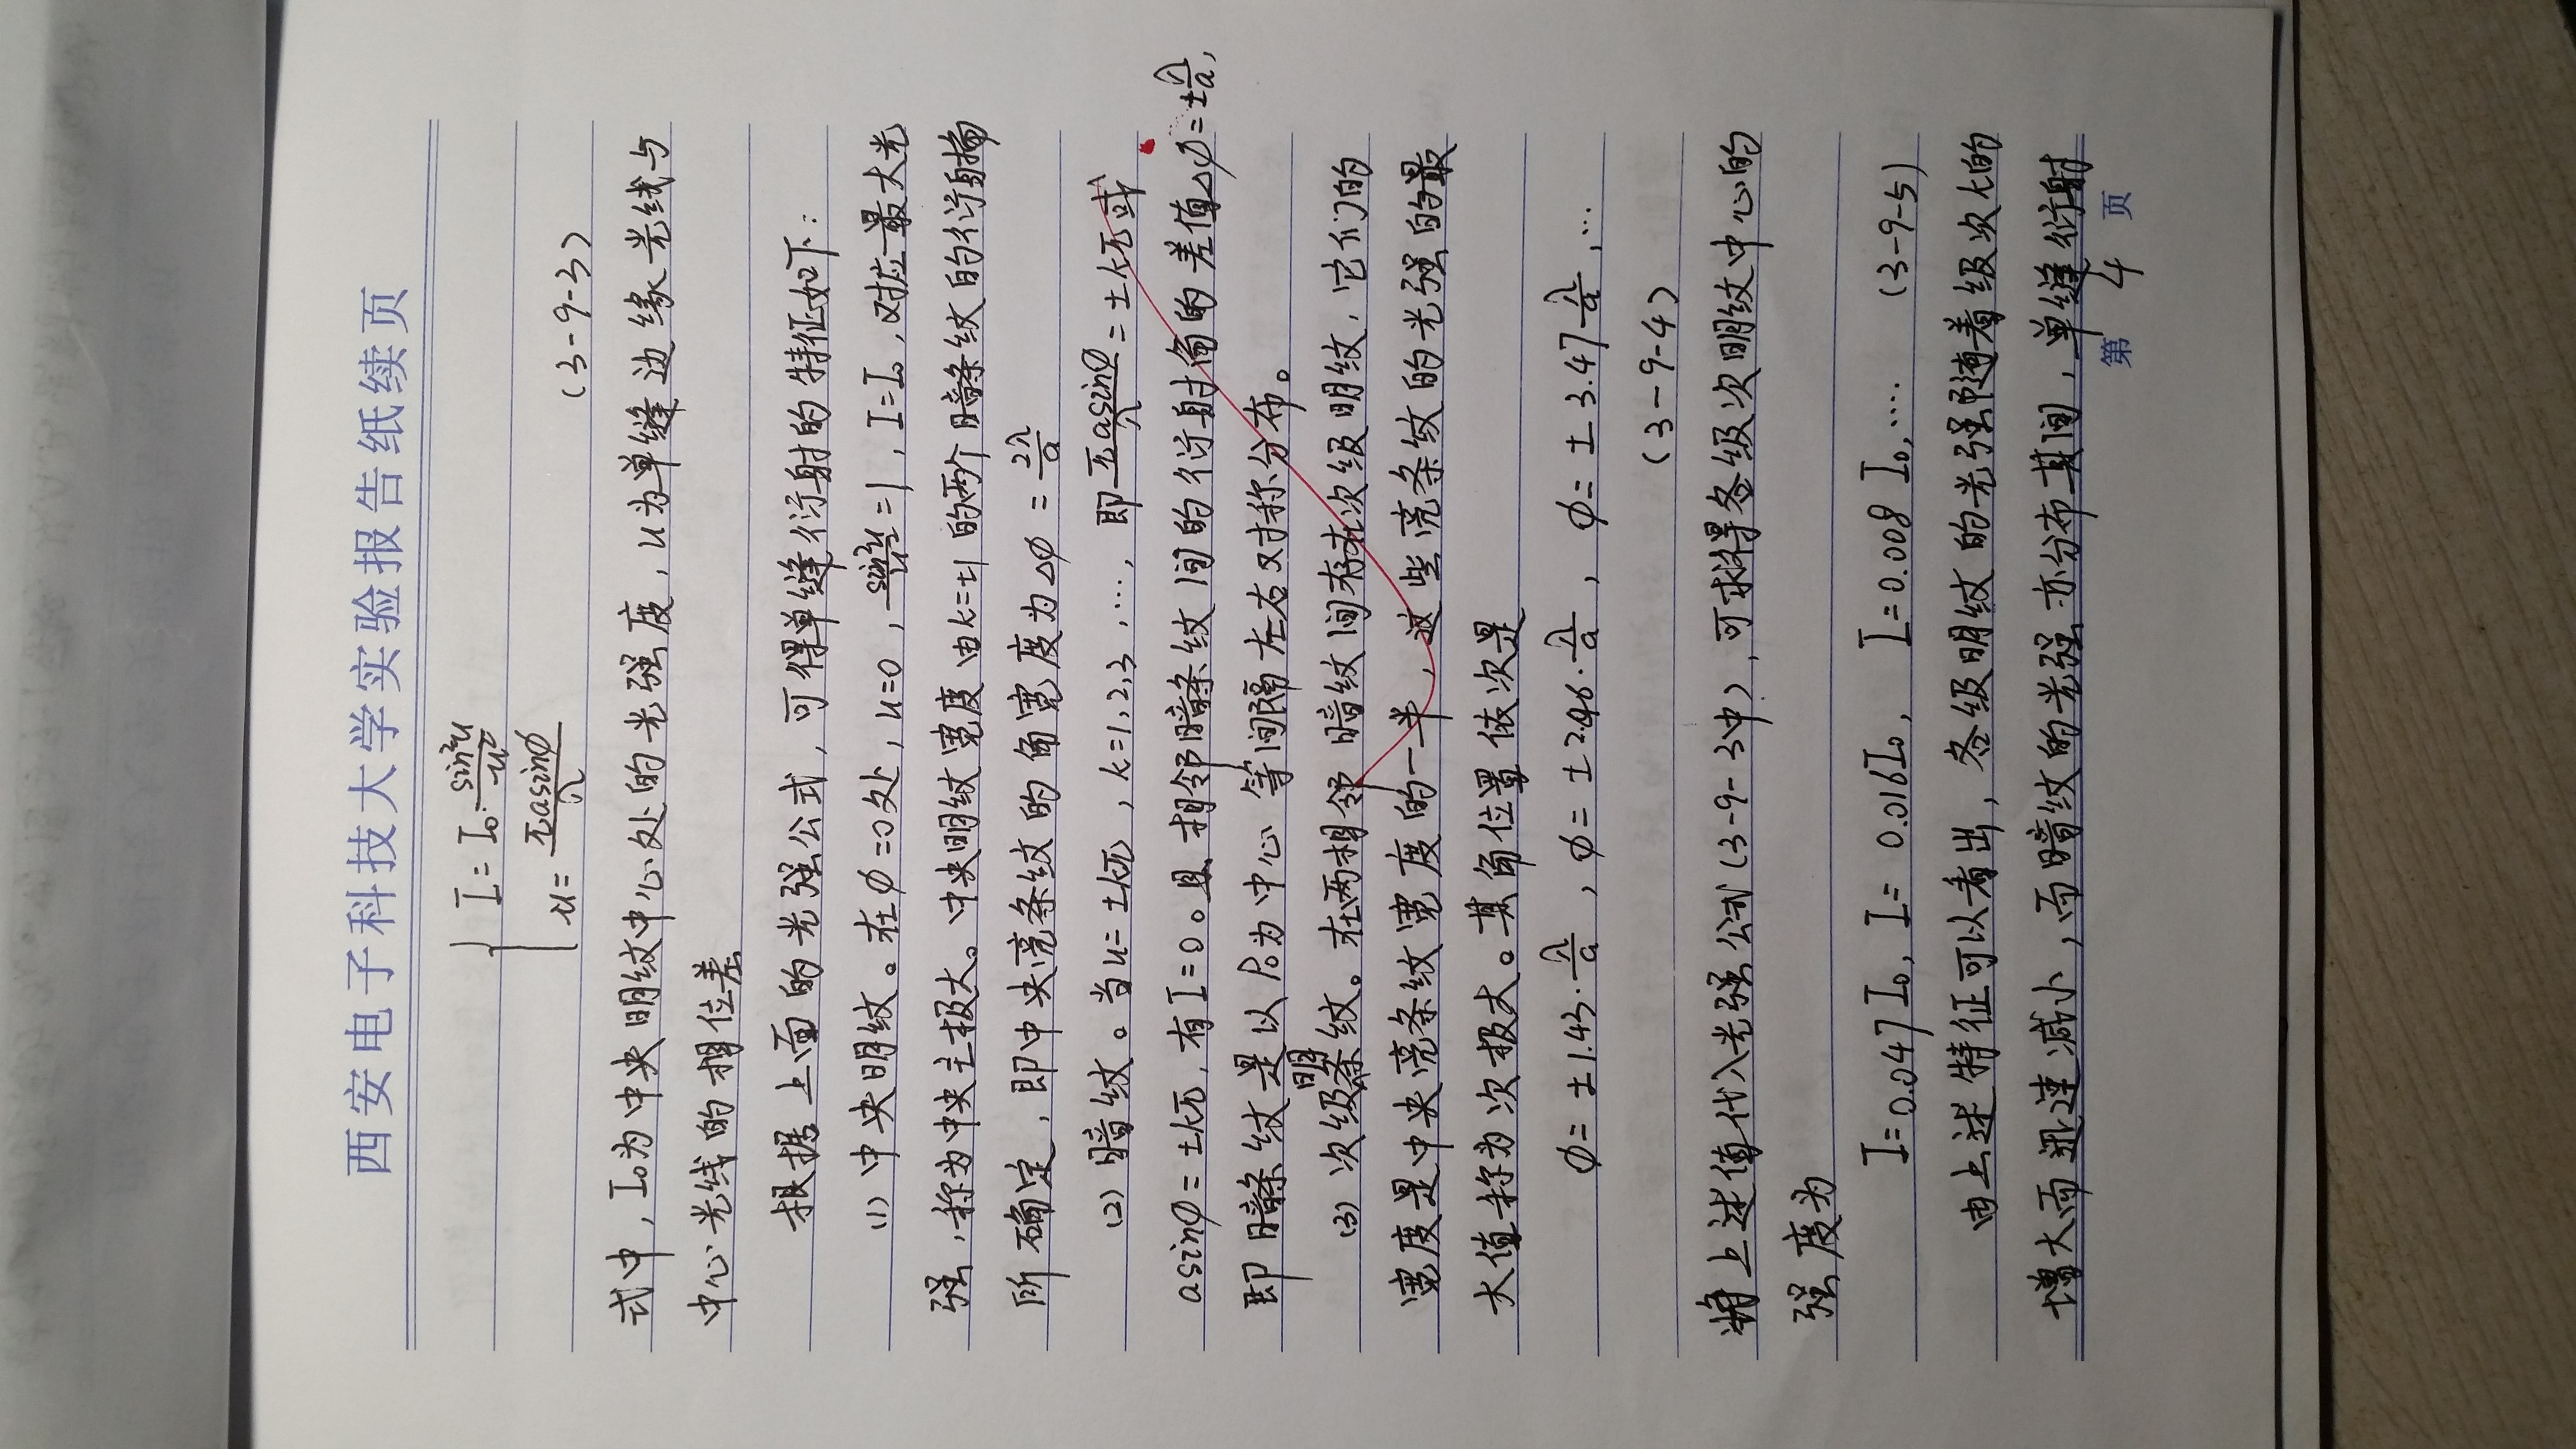 西安电子科技大学实验报告纸续页
I = I₀·sin²u/u²
u = πasinφ/λ (3-9-3)
式中，I₀为中央明纹中心处的光强度，u为单缝边缘光线与
中心光线的相位差
根据上面的光强公式，可得单缝衍射的特征如下：
(1) 中央明纹。在φ=0处，u=0，sin²u/u²=1，I=I₀，对应最大光
强，称为中央主极大。中央明纹宽度由k=±1的两个暗条纹的衍射角
所确定，即中央亮条纹的角宽度为Δφ = 2λ/a
(2) 暗纹。当u=±kπ，k=1,2,3，…，即πasinφ/λ = ±kπ或
asinφ=±kπ，有I=0。且相邻暗条纹间的衍射角的差值Δφ=±λ/a，
即暗条纹是以P₀为中心等间隔左右对称分布。
(3) 次级明条纹。在两相邻暗纹间存在次级明纹，它们的
宽度是中央亮条纹宽度的一半，这些亮条纹的光强的最
大值称为次极大。其角位置依次是
φ= ±1.43·λ/a，φ= ±2.46·λ/a，φ= ±3.47λ/a，…
(3-9-4)
将上述值代入光强公式(3-9-3中)，可求得各级次明纹中心的
强度为
I=0.047I₀, I= 0.016I₀, I=0.008 I₀,…. (3-9-5)
由上述特征可以看出，各级明纹的光强随着级次k的
增大而迅速减小，而暗纹的光强亦分布其间，单缝衍射
第 4 页